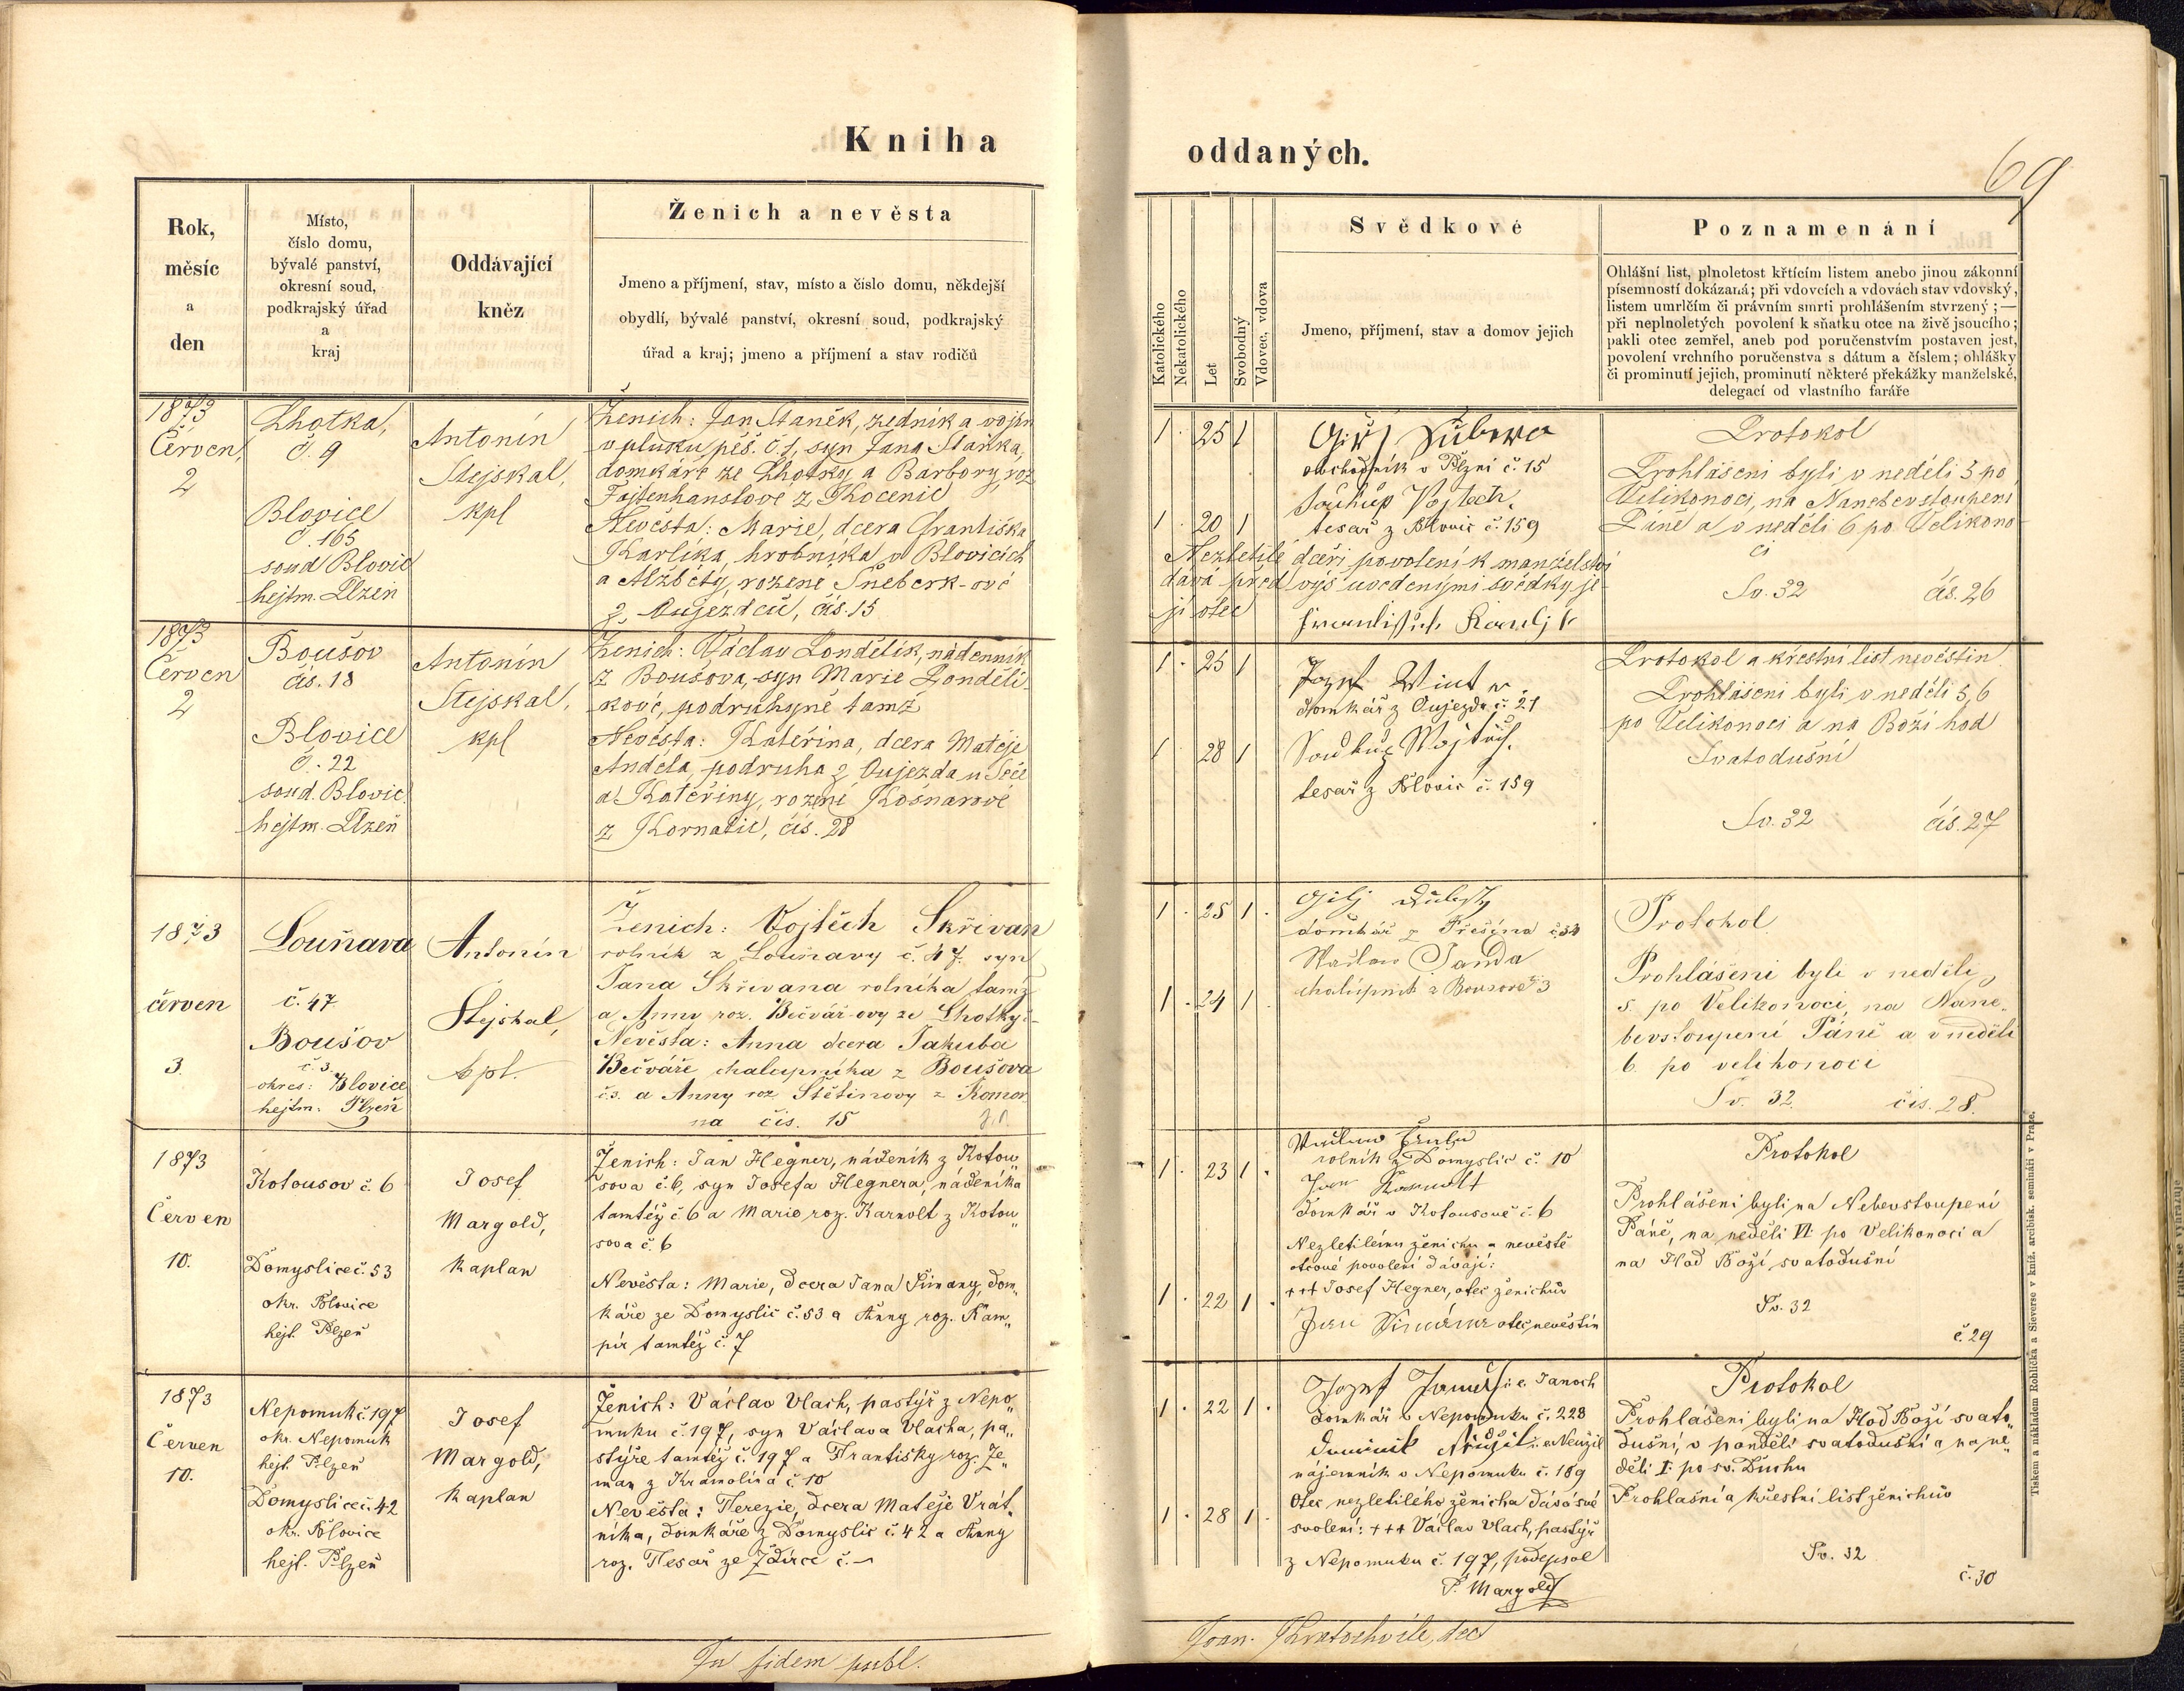 Kniha
oddaných.
69
Rok,
měsíc
a
den
Místo,
číslo domu,
bývalé panství,
okresní soud,
podkrajský úřad
a
kraj
Oddávající
kněz
Ženich a nevěsta
Jmeno a příjmení, stav, místo a číslo domu, někdejší
obydlí, bývalé panství, okresní soud, podkrajský
úřad a kraj; jmeno a příjmení a stav rodičů
Katolického
Nekatolického
Let
Svobodný
Vdovec, vdova
Svědkové
Jmeno, příjmení, stav a domov jejich
Poznamenání
Ohlášní list, plnoletost křtícím listem anebo jinou zákonní
písemností dokázaná; při vdovcích a vdovách stav vdovský,
listem umrlčím či právním smrti prohlášením stvrzený;—
při neplnoletých povolení k sňatku otce na živě jsoucího;
pakli otec zemřel, aneb pod poručenstvím postaven jest,
povolení vrchního poručenstva s dátum a číslem; ohlášky
či prominutí jejich, prominutí některé překážky manželské,
delegací od vlastního faráře
1873
Červen,
2
Lhotka,
č. 9
Blovice
č. 165
soud Blovic
hejtm. Plzeň
Antonín
Stejskal,
kpl
Ženich: Jan Staněk, zedník a vojín
v pluku pěš. č. 1, syn Jana Staňka,
domkáře ze Lhotky a Barbory, roz
z Kocenic
Nevěsta: Marie, dcera Františka
Karlíka, hrobníka v Blovicích
a Alžběty, rozené Šneberk-ové
z Oujezdců, čís. 15
1 · 25 1
1 · 20 1
Jiří
obchodník v Plzni č. 15
Soukup Vojtěch,
tesař z Blovic č. 159
Nezletilé dceři povolení k manželství
dává před výš uvedenými svědky je-
jí otec
František Karlík
Protokol
Prohlášeni byli v neděli 5 po
Velikonoci, na Nanebevstoupení
Páně a v neděli 6. po Velikono-
ci
Sv. 32 čís. 26
1873
Červen
2
Boušov
čís. 18
Blovice
č. 22
soud. Blovic.
hejtm. Plzeň
Antonín
Stejskal,
kpl
Ženich: Václav Londělík, nádenník
z Boušova, syn Marie Londělí-
kové, podruhyně tamž
Nevěsta: Kateřina, dcera Matěje
Anděla, podruha z Oujezda u Seče
a Kateřiny, rozené Košnarové
z Kornatic, čís. 28
1 · 25 1
1 28 1
Jozef Wint
domkář z Oujezda č. 21
Soukup Wojtěch,
tesař z Blovic č. 159
Protokol a křestní list nevěstin
Prohlášeni byli v neděli 5, 6
po Velikonoci a na Boží hod
Svatodušní
Sv. 32 čís. 27
1873
červen
3.
Louňava
č. 47
Boušov
č. 3.
okres: Blovice
hejtm: Plzeň
Antonín
Stejskal,
kpl.
Ženich: Vojtěch Skřivan
rolník z Louňavy č. 47. syn
Jana Skřivana rolníka tamž
a Anny roz. Bečvář-ovy ze Lhotky-
Nevěsta: Anna dcera Jakuba
Bečváře chalupníka z Boušova
č. 3. a Anny roz Štětinovy z Komor
na čís. 15
1 · 25 1 ·
1 · 24 1 ·
domkář z Přešína č. 34
Waclaw Janda
chalupnik z Bousova 3
Protokol
Prohlášeni byli v neděli
5. po Velikonoci, na Nane-
bevstoupení Páně a v neděli
6. po velikonoci
Sv. 32. čís. 28.
1873
Červen
10.
Kotousov č. 6
Domyslice č. 53
okr. Blovice
hejt. Plzeň
Josef
Margold,
Kaplan
Ženich: Jan Hegner, nádeník z Kotou„
sova č. 6, syn Josefa Hegnera, nádeníka
tamtéž č. 6 a Marie roz. Karnolt z Kotou„
sova č. 6
Nevěsta: Marie, dcera Jana Šimany, dom„
káře ze Domyslic č. 53 a Anny roz. Kam„
pír tamtéž č. 7
1 · 23 1 ·
1 · 22 1 ·
Václaw
rolník z Domyslic č. 10
Jan Karnolt
domkář v Kotousově č. 6
Nezletilému ženichu a nevěstě
otcové povolení dávají:
+++ Josef Hegner, otec ženichův
Jan Šimána otec nevěstin
Protokol
Prohlášeni byli na Nebevstoupení
Páně, na neděli VI po Velikonoci a
na Hod Boží svatodušní
Sv. 32
č. 29
1873
Červen
10.
Nepomuk č. 197
okr. Nepomuk
hejt. Plzeň
Domyslice č. 42
okr. Blovice
hejt. Plzeň
Josef
Margold,
Kaplan
Ženich: Václav Vlach, pastýř z Nepo„
muku č. 197, syn Václava Vlacha, pa„
stýře tamtéž č. 197 a Františky roz. Ze„
man z Kramolína č. 10
Nevěsta: Terezie, dcera Matěje Vrát„
níka, domkáře z Domyslic č. 42 a Anny
roz. Tesař ze Ždírce č. –
1 · 22 1 ·
1 · 28 1 ·
Jozef Janoch i. e. Janoch
domkář v Nepomuku č. 228
Dominik Neužil i. e. Neužil
nájemník v Nepomuku č. 189
Otec nezletilého ženicha dává své
svolení: +++ Václav Vlach, pastýř
z Nepomuku č. 197, podepsal
P. Margold
Protokol
Prohlášeni byli na Hod Boží svato„
dušní, v pondělí svatodušní a na ne„
děli I. po sv. Duchu
Prohlašní a křestní list ženichův
Sv. 32
č. 30
In fidem publ.
Joan. Kratochvíle, dec
Tiskem a nákladem Rohlíčka a Sieverse v kníž. arcibisk. semináři v Praze.